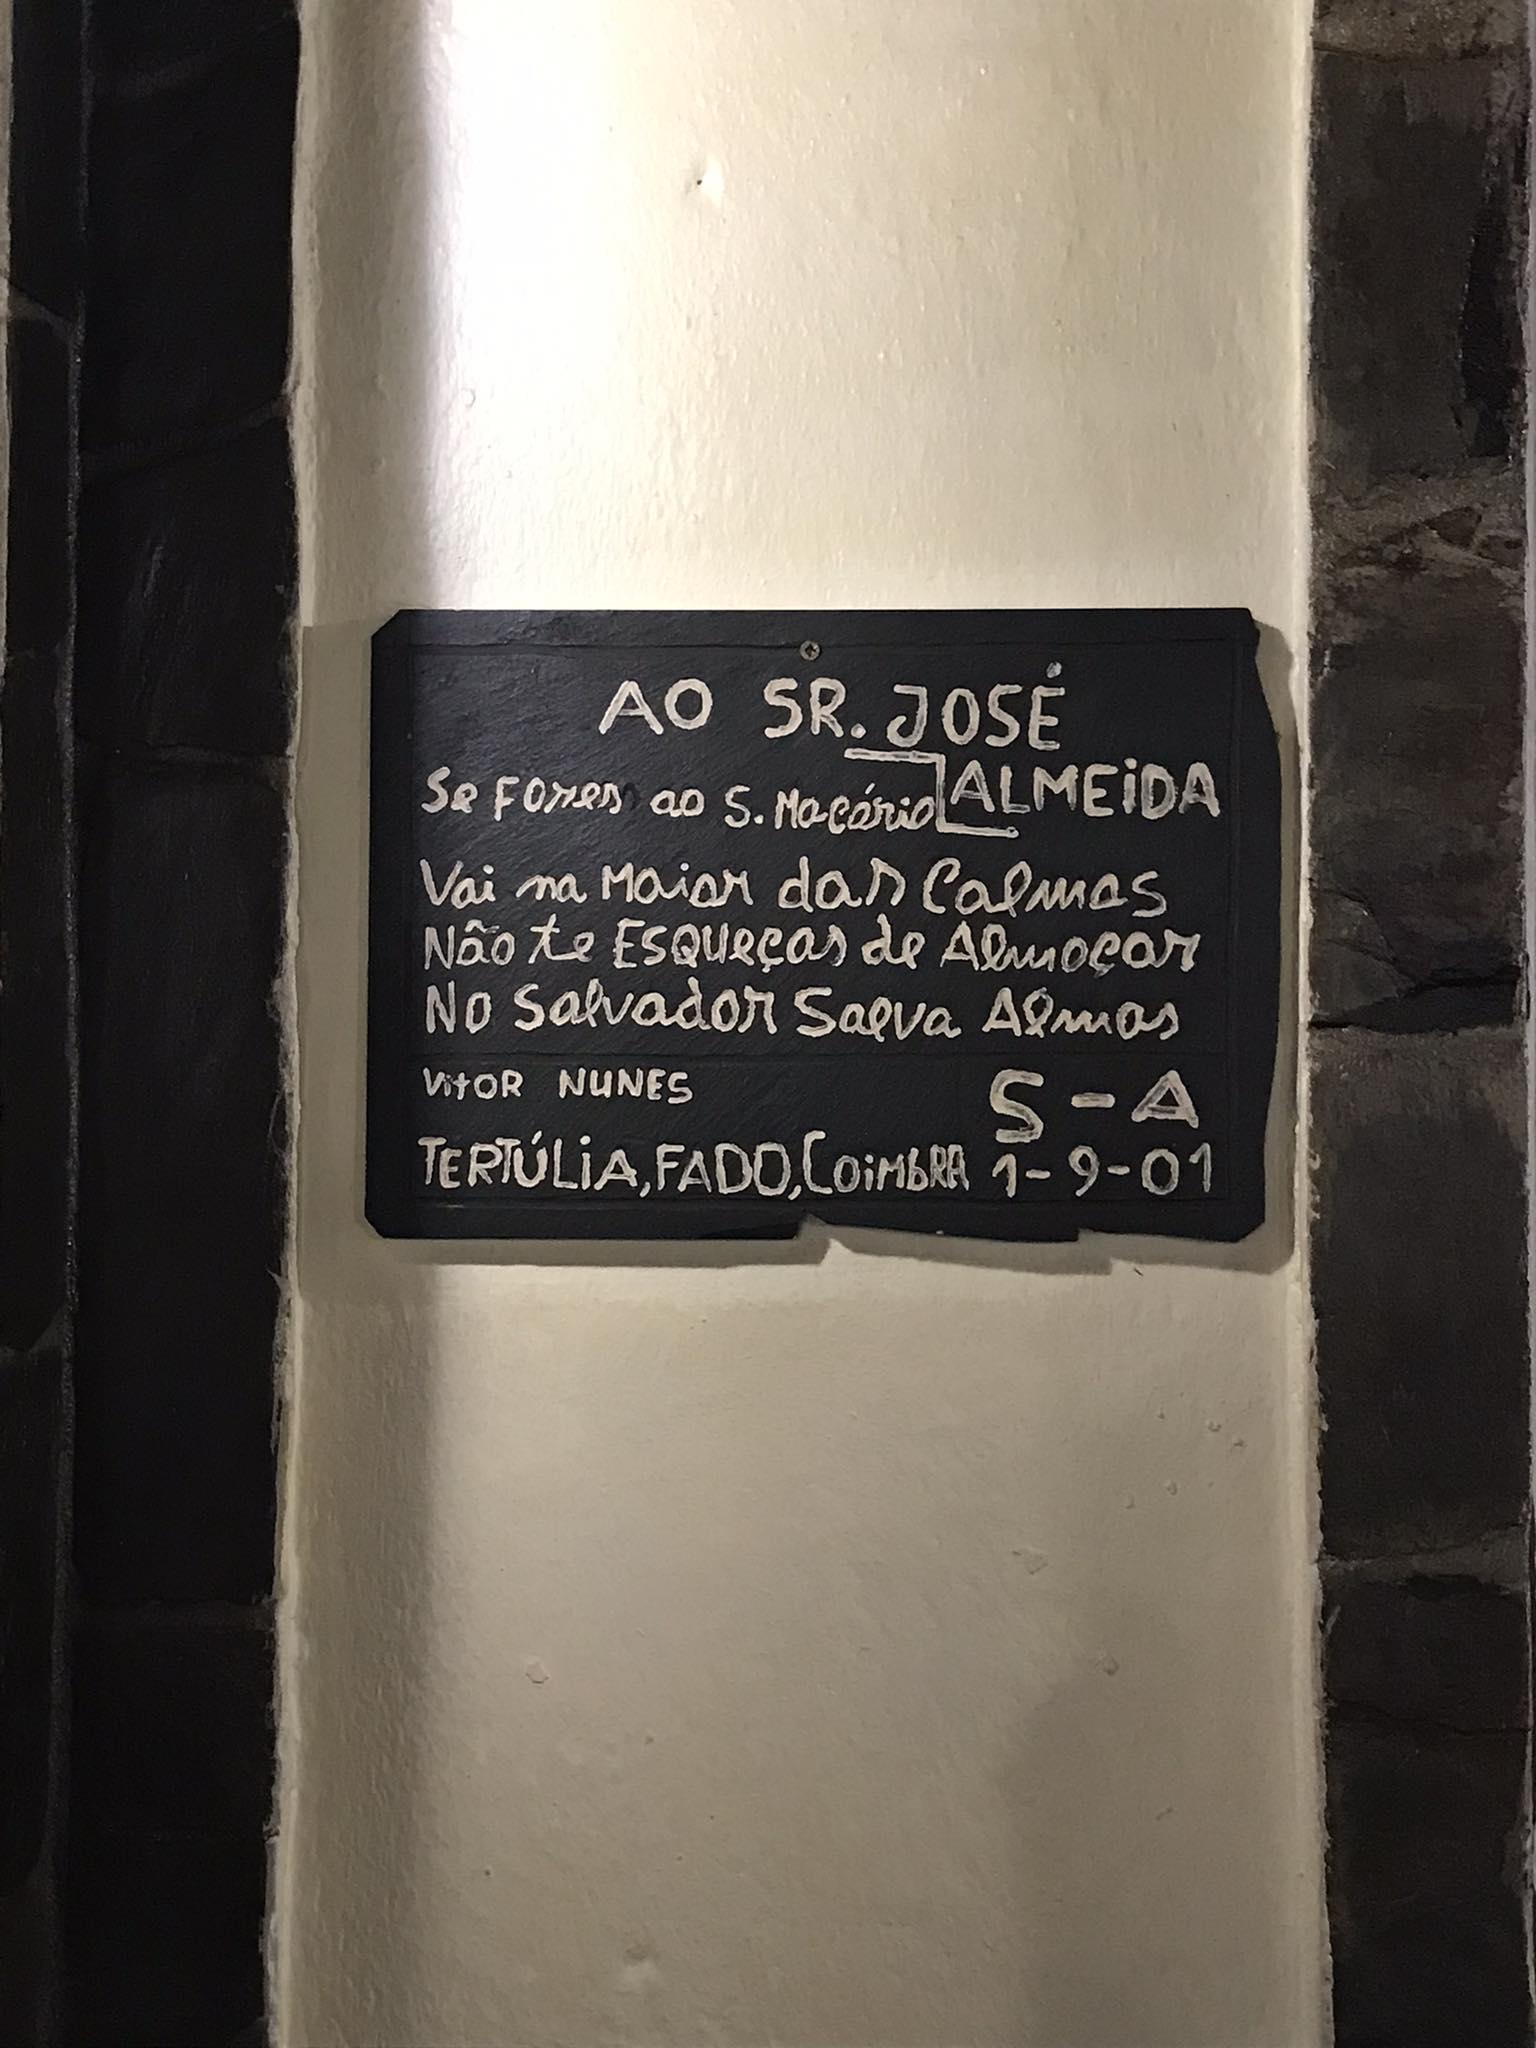 AO SR. JOSÉ
ALMEiDA
Se Fores ao S. Macário
Vai na Maior das Calmas
Não te Esqueças de Almoçar
No Salvador Salva Almas
VitOR NUNES
S-A
TERTÚLiA, FADO, CoiMbRA 1-9-01